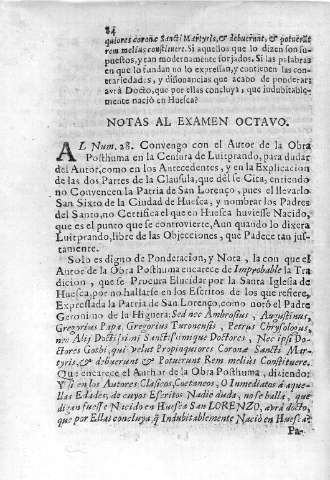 84
quiores coronæ Sancti Martyris, & debuerunt, & potuerũt
rem melius constituere. Si aquellos que lo dizen son su-
puestos, y tan modernamente forjados. Si las palabras
en que lo fundan no lo expressan, y contienen las con-
trariedades, y dissonancias que acabo de ponderar;
avrà Docto, que por ellas concluya, que indubitable-
mente naciò en Huesca?
NOTAS AL EXAMEN OCTAVO.
AL Num. 28. Convengo con el Autor de la Obra
Posthuma en la Censura de Luitprando, para dudar
del Autor, como en los Antecedentes, y en la Explicacion
de las dos Partes de la Clausula, que dèl se Cita, entiendo
no Convencen la Patria de San Lorenço, pues el llevarlo
San Sixto de la Ciudad de Huesca, y nombrar los Padres
del Santo, no Certifica el que en Huesca huviesse Nacido,
que es el punto que se controvierte, Aun quando lo dixera
Luitprando, libre de las Objecciones, que Padece tan jus-
tamente.
Solo es digno de Ponderacion, y Nota, la con que el
Autor de la Obra Posthuma encarece de Improbable la Tra-
dicion, que se Procura Elucidar por la Santa Iglesia de
Huesca, por no hallarse en los Escritos de los que refiere,
Expressada la Patria de San Lorenço, como notò el Padre
Geronimo de la Higuera: Sed nec Ambrosius, Augustinus,
Gregorius Papa, Gregorius Turonensis, Petrus Chrysologus,
nec Alij Doctissimi Sanctissimique Doctores, Nec ipsi Do-
ctores Gothi, qui velut Propinquiores Coronæ Sancti Mar-
tyris, & debuerunt & Potuerunt Rem meliùs Constituere.
Que encarece el Author de la Obra Posthuma, diziendo:
Y si en los Autores Clasicos, Coetaneos, O Inmediatos à aque-
llas Edades, de cuyos Escritos Nadie duda, no se halla, que
digan fuesse Nacido en Huesca San LORENZO, avrà docto,
que por Ellas concluya, q̃ Indubitablemente Naciò en Huesca?
Pa-